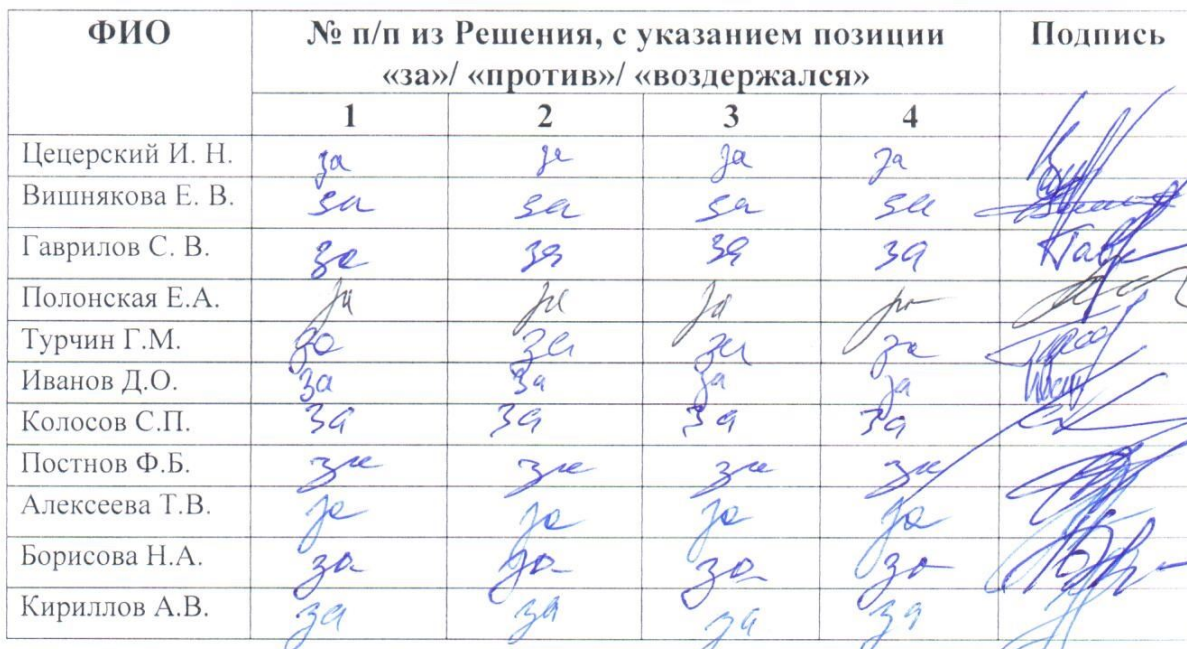 ФИО № п/п из Решения, с указанием позиции Подпись
«за»/ «против»/ «воздержался»
1 2 3 4
Цецерский И. Н. за за за за
Вишнякова Е. В. за за за за
Гаврилов С. В. за за за за
Полонская Е.А. за за за за
Турчин Г.М. за за за за
Иванов Д.О. за за за за
Колосов С.П. за за за за
Постнов Ф.Б. за за за за
Алексеева Т.В. за за за за
Борисова Н.А. за за за за
Кириллов А.В. за за за за